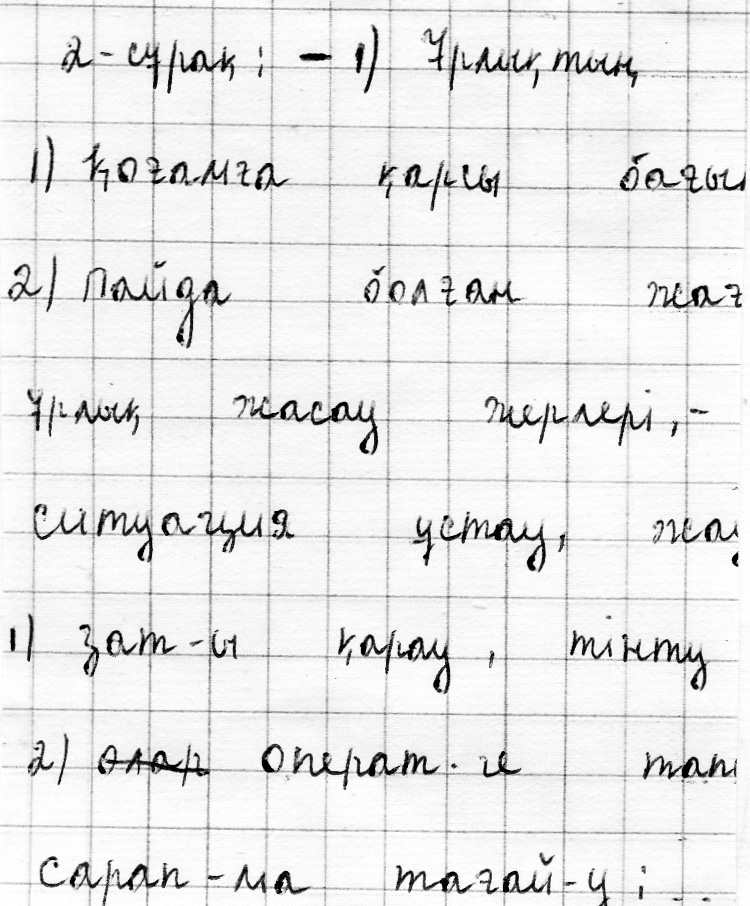 2-сұрақ: - 1) Ұрлықтың
1) Қоғамға қарсы бағы
2) Пайда болған жағ
Ұрлық жасау жерлері, -
ситуация ұстау, жау
1) зат-ы қарау, тінту
2) олар операт. ге тап
сарап-ма тағай-у; ..